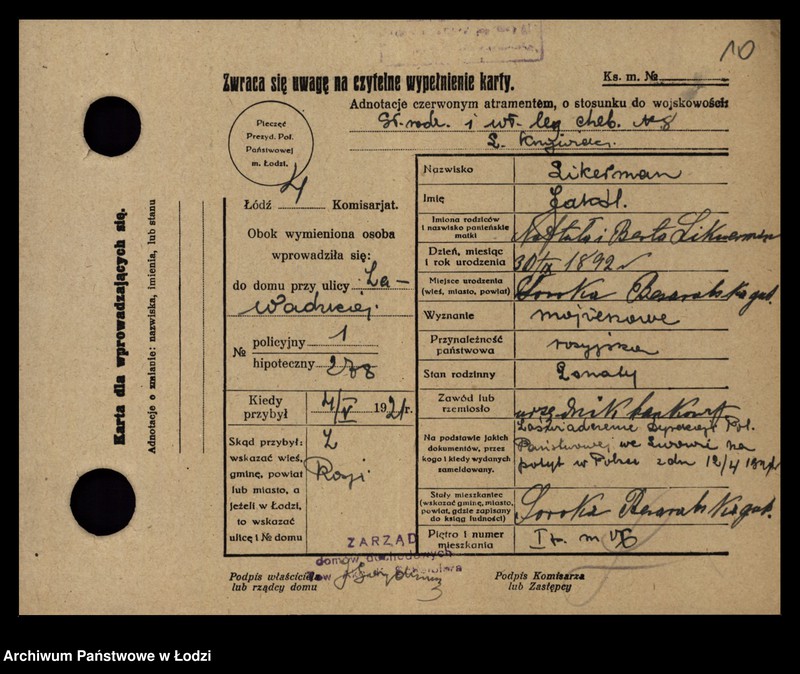 10
Zwraca się uwagę na czytelne wypełnienie karty.
Ks. m. №
Adnotacje czerwonym atramentem, o stosunku do wojskowości:
i wł. leg
Pieczęć
Prezyd. Pol.
Państwowej
m. Łodzi.
Łódź 4 Komisarjat.
Obok wymieniona osoba
wprowadziła się:
do domu przy ulicy Za-
wadzkiej
№ policyjny 1
hipoteczny 278
Kiedy przybył 4/V 1921 r.
Skąd przybył:
wskazać wieś,
gminę, powiat
lub miasto, a
jeżeli w Łodzi,
to wskazać
ulicę i № domu
Z
Rosji
Nazwisko Likerman
Imię
Imiona rodziców
i nazwisko panieńskie
matki
Naftula i Berta Likerman
Dzień, miesiąc
i rok urodzenia
30/IX 1892 r
Miejsce urodzenia
(wieś, miasto, powiat)
Soroka Besarabska gub.
Wyznanie mojżeszowe
Przynależność
państwowa
rosyjska
Stan rodzinny żonaty
Zawód lub
rzemiosło
urzędnik bankowy
Na podstawie jakich
dokumentów, przez
kogo i kiedy wydanych
zameldowany.
Zaświadczenie Dyrekcji Pol.
Państwowej we Lwowie na
pobyt w Polsce z dn 12/4
Stały mieszkaniec
(wskazać gminę, miasto,
powiat, gdzie zapisany
do ksiąg ludności)
Soroka Besarabska gub.
Piętro i numer
mieszkania
I p. m
ZARZĄD
domów dochodowych
Podpis właściciela
lub rządcy domu
Podpis Komisarza
lub Zastępcy
Karta dla wprowadzających się.
Adnotacje o zmianie: nazwiska, imienia, lub stanu
Archiwum Państwowe w Łodzi